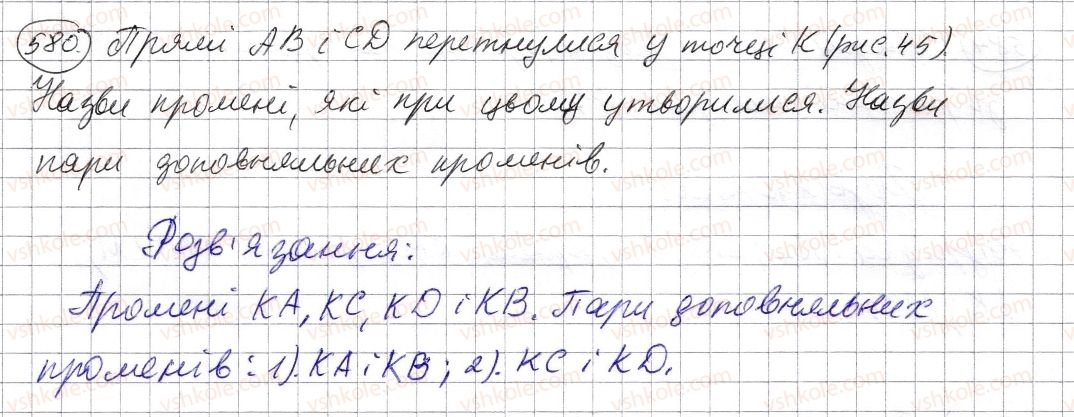 580. Прямі AB і CD перетнулися у точці K (рис. 45).
Назви промені, які при цьому утворилися. Назви
пари доповняльних променів.
Розв'язання:
Промені KA, KC, KD і KB. Пари доповняльних
променів: 1). KA і KB; 2). KC і KD.